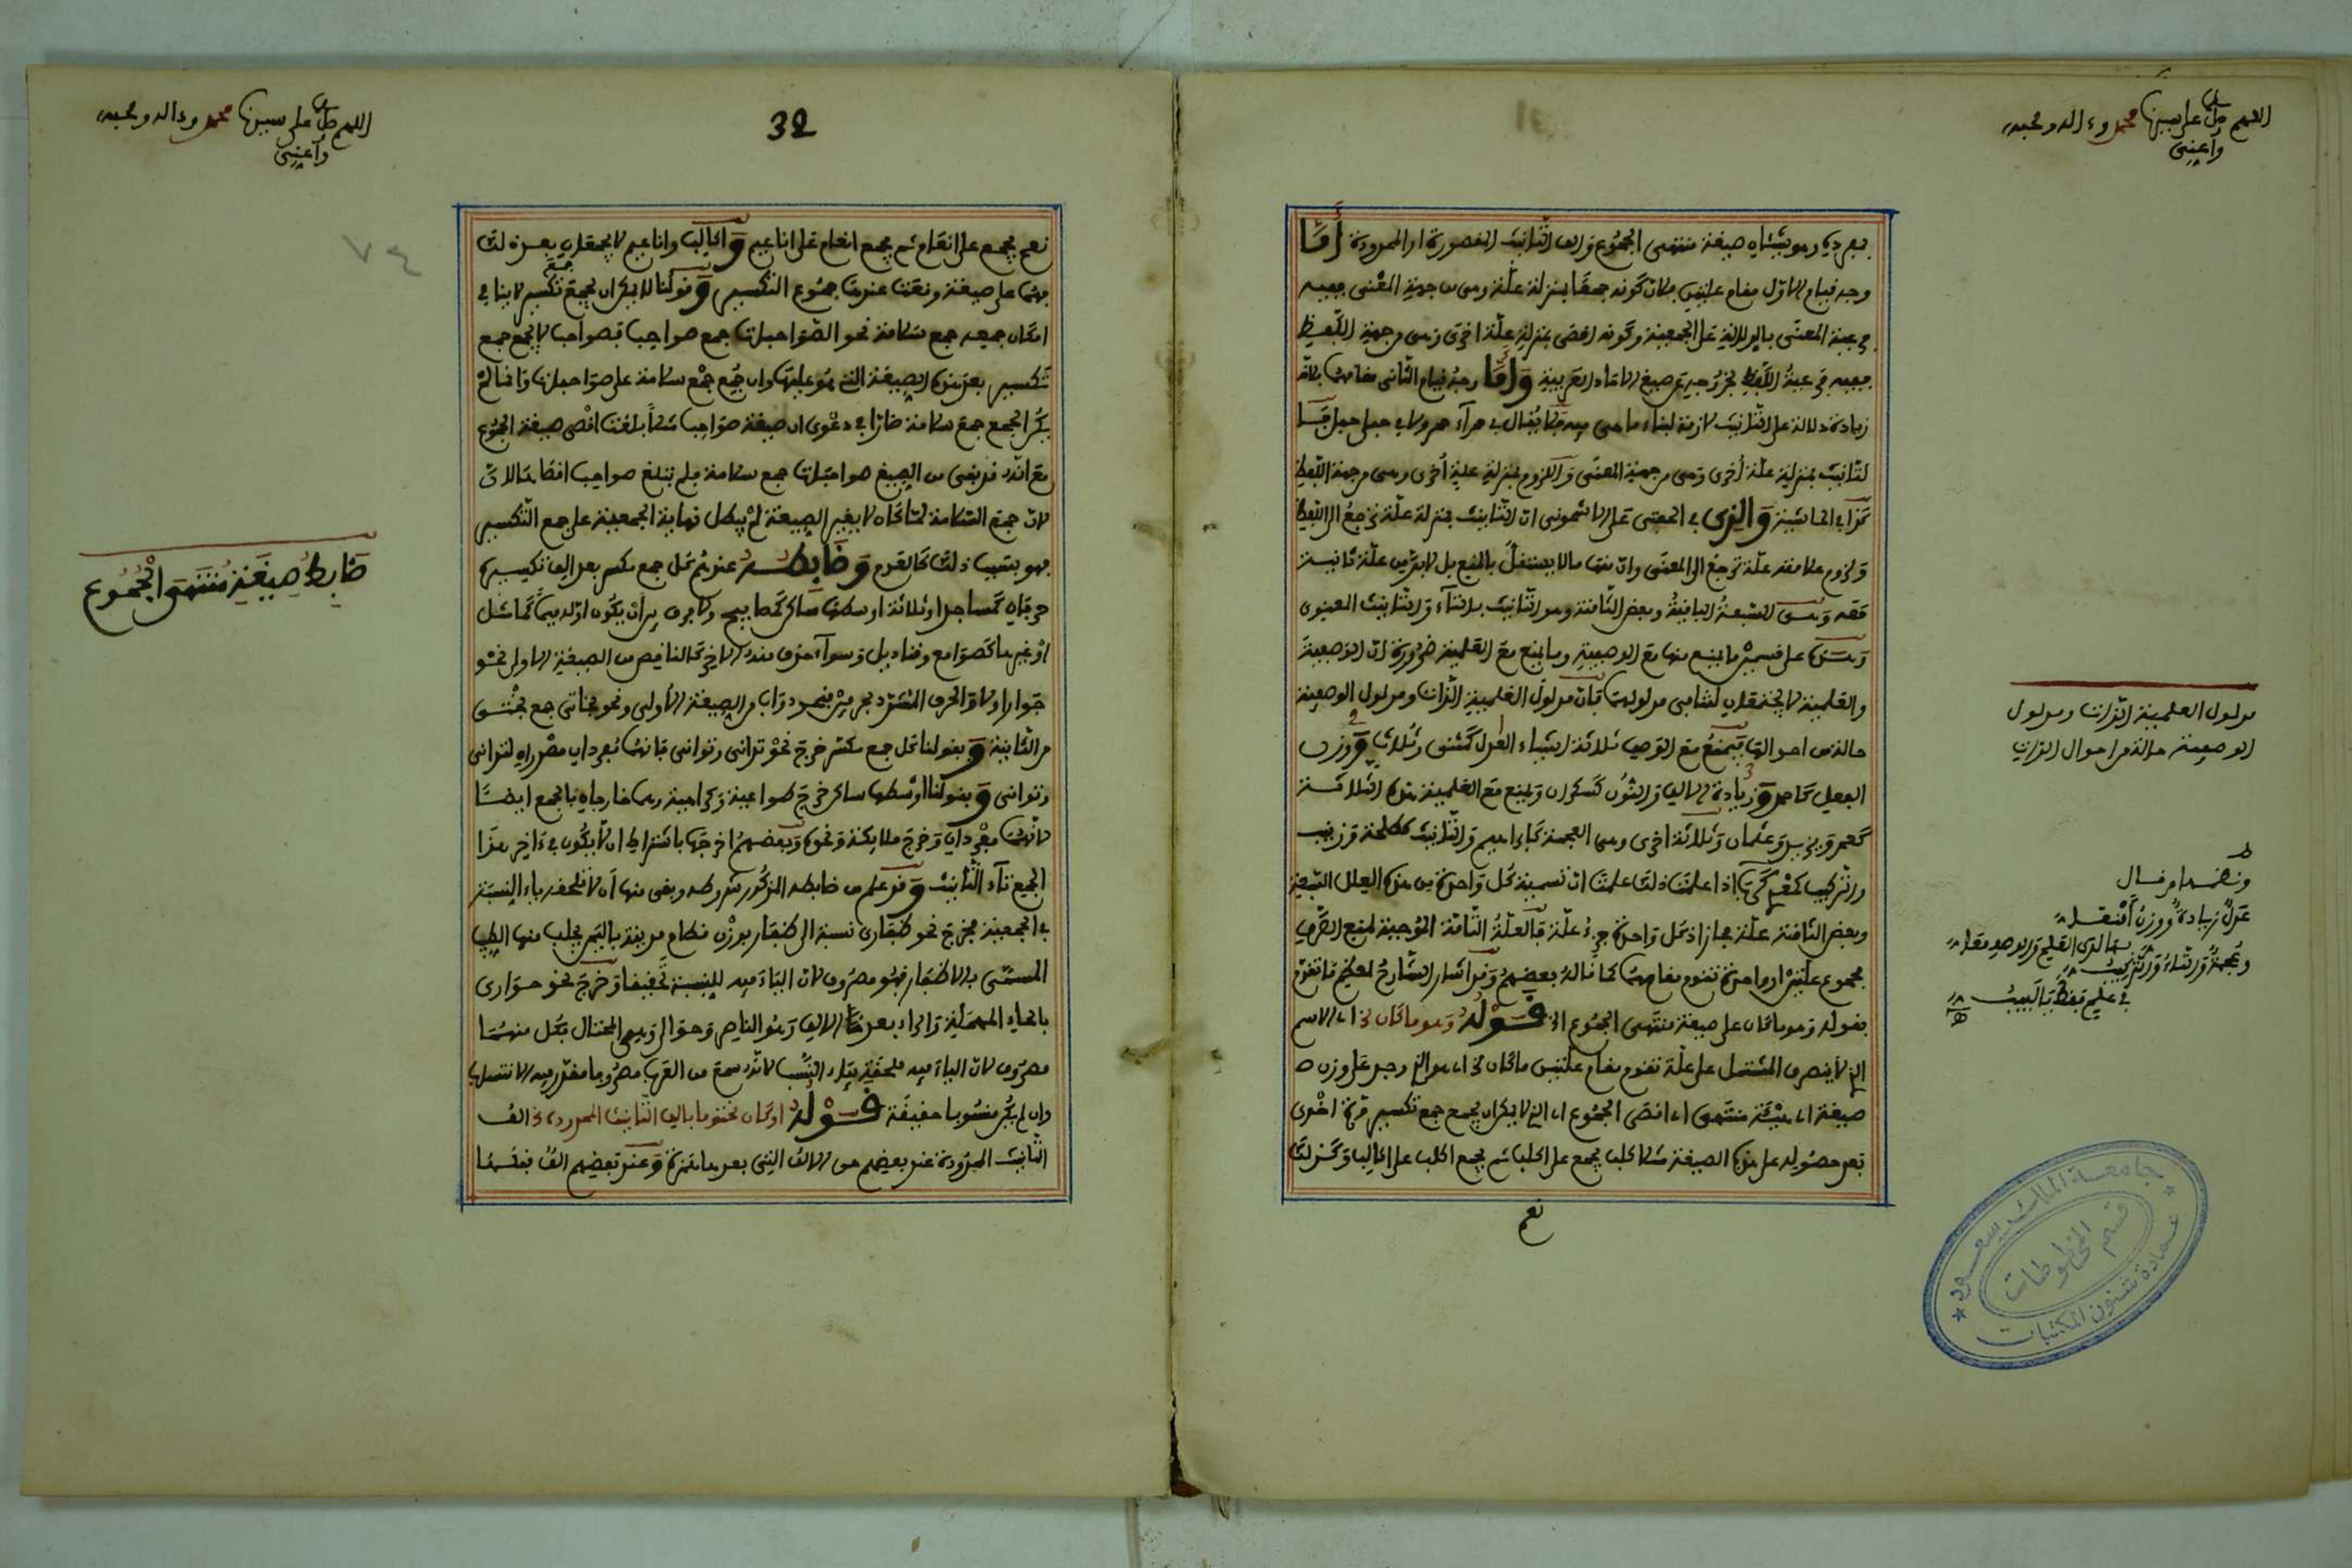 اللهم صل على سيدنا محمد وءاله وصحبه
وأعنى
بعرديه وهو شيئان صيغة منتهى الجموع والف التانيث المقصورة او الممدودة أما
وجه قيام الاول مقام علتين فلان كونه جمعا بمنزلة علة وهى من جهة المعنى ففيه
فرعية المعنى بالدلالة على الجمعية وكونه اقصى بمنزلة علة اخرى وهى من جهة اللفظ
ففيه فرعية اللفظ بخروجه عن صيغ الاحاد العربية وأما وجه قيام الثانى مقامهما فلان
زيادة دلالة على التانيث لازمة لبناء ما هى فيه فلا يقال فى حمرآء حمر ولا فى حبلى حبل
لتانيث بمنزلة علة أخرى وهى من جهة المعنى واللزوم بمنزلة علة أخرى وهى من جهة اللفظ
كذا فى الحاشية والذى فى الحفنى على الاشمونى ان التانيث بمنزلة علة ترجع الى اللفظ
ولزوم علامته علة ترجع الى المعنى وان منها ما لا يستقل بالمنع بل لابد من علة ثانية
معه وهى السبعة الباقية وبعض الثامنة وهو التانيث بالتآء والتانيث المعنوى
وهذه على قسمين ما يمنع منها مع الوصفية وما يمنع مع العلمية ضرورة ان الوصفية
والعلمية لا يجتمعان لتنافى مدلوليهما فان مدلول العلمية الذات ومدلول الوصفية
حالة من احوالها فيمنع مع الوصف ثلاثة اشياء العدل كمثنى وثلاث ووزن
الفعل كاحمر وزيادة الالف والنون كسكران ويمنع مع العلمية هذه الثلاثة
كعمر ويزيد وعثمان وثلاثة اخرى وهى العجمة كابراهيم والتانيث كطلحة وزينب
والتركيب كمعد يكرب اذا علمت ذلك علمت ان تسمية كل واحدة من هذه العلل السبعة
وبعض الثامنة علة مجاز اذ كل واحدة جزء علة فالعلة التامة الموجبة لمنع الصرف
مجموع علتين او واحدة تقوم مقامهما كما قاله بعضهم وقد اشار الشارح لهذا فيما تقدم
بقوله وهو ما كان على صيغة منتهى الجموع الخ قوله وهو ما كان الخ اى الاسم
الذى لا ينصرف المشتمل على علة تقوم مقام علتين ما كان الخ اى هو الذى وجد على وزن
صيغة اى هيئة منتهى اى اقصى الجموع اى الذى لا يمكن ان يجمع جمع تكسير مرة اخرى
بعد حصوله على هذه الصيغة مثلا كلب يجمع على اكلب ثم يجمع اكلب على اكالب وكذلك
نعم
مدلول العلمية الذات ومدلول
الوصفية حالة من احوال الذات
عدل زيادة ووزن
جامعة الملك سعود
قسم المخطوطات
عمادة شئون المكتبات
اللهم صل على سيدنا محمد وءاله وصحبه
وأعنى
32
٧٤
نعم يجمع على انعام ثم يجمع انعام على اناعيم واكالب واناعيم لا يجمعان بعد ذلك
فهما على صيغة وقفت عندها جموع التكسير وقولنا لا يمكن ان يجمع جمع تكسير لا ينافى
امكان جمعه جمع سلامة نحو الصواحبات جمع صواحب فصواحب لا يجمع جمع
تكسير بعد هذه الصيغة التى هو عليها وان جمع جمع سلامة على صواحبات وانما لم
يكن الجمع جمع سلامة ضارا فى دعوى ان صيغة صواحب مثلا بلغت اقصى صيغة الجموع
مع انه قد بقى من الصيغ صواحبات جمع سلامة فلم تبلغ صواحب
لان جمع السلامة لما كان لا يغير الصيغة لم يبطل نهاية الجمعية على جمع التكسير
فهو بسبب ذلك كالعدم وضابطه عندهم كل جمع مكسر بعد الف تكسيره
حرفان كمساجد او ثلاثة اوسطها ساكن كمصابيح ولا فرق بين ان يكون اوله ميما كما مثل
او غيرها كصوامع وقناديل وسواء حذف منه الاخر كالناقص من الصيغة الاولى نحو
جوار اولا والحرف المشدد بحرفين فنحو دواب من الصيغة الأولى ونحو بخاتى جمع بختى
من الثانية وبقولنا كل جمع مكسر خرج نحو تدانى وتوانى فانهما مفردان مصدران لتدانى
وتوانى وبقولنا اوسطها ساكن خرج طواعية وكراهية وهما خارجان بالجمع ايضا
لانهما مفردان وخرج ملائكة ونحوه وبعضهم اخرجها باشتراط ان لا يكون فى ءاخر هذا
الجمع تآء التانيث وقد علم من ضابطه المذكور شروطه وبقى منها ان لا تلحقه ياء النسبة
فى الجمعية فخرج نحو ظفارى نسبة الى ظفار بوزن قطام مدينة باليمن يجلب منها الطيب
المسمى بالاظفار فهو مصروف لان الياء فيه للنسبة تحقيقا وخرج نحو حوارى
بالحاء المهملة والراء بعد الالف وهو الناصر وحوالى وهى المحتال فكل منهما
مصروف لان الياء فيه ملحقة بياء النسب لانه سمع من العرب مصروفا
وان لم يكن منسوبا حقيقة قوله او كان مختوما بالف التانيث الممدودة الخ الف
التانيث الممدودة عند بعضهم هى الالف التى بعدها همزة وعند بعضهم الف قبلها
ضابط صيغة منتهى الجموع